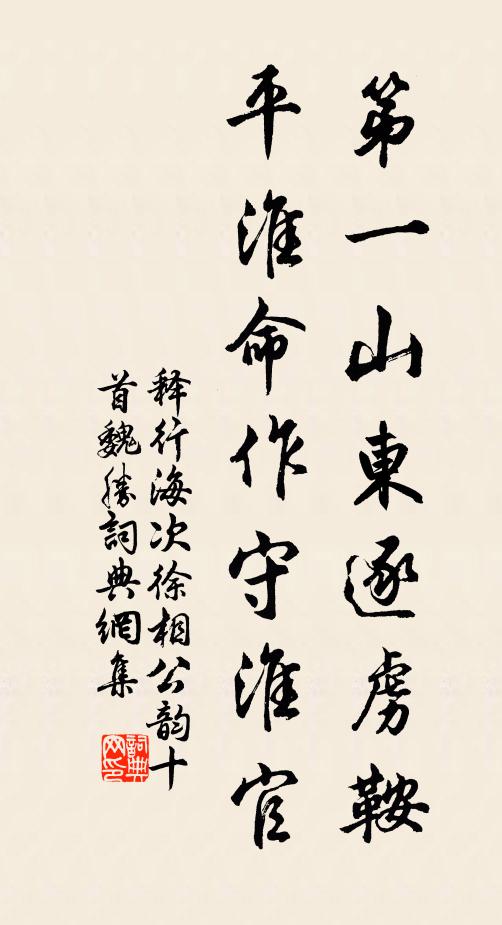 第一山東逐虜鞍
平淮命作守淮官
释行海次徐相公韵十
首魏勝詞典網集
詞典
网印